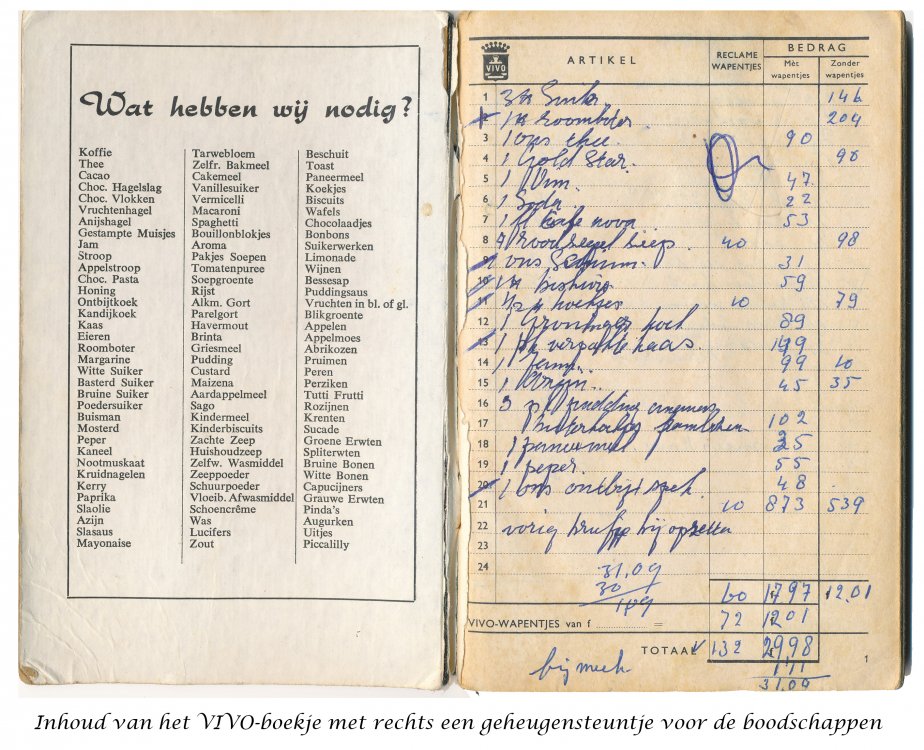 Wat hebben wij nodig?
Koffie
Thee
Cacao
Choc. Hagelslag
Choc. Vlokken
Vruchtenhagel
Anijshagel
Gestampte Muisjes
Jam
Stroop
Appelstroop
Choc. Pasta
Honing
Ontbijtkoek
Kandijkoek
Kaas
Eieren
Roomboter
Margarine
Witte Suiker
Basterd Suiker
Bruine Suiker
Poedersuiker
Buisman
Mosterd
Peper
Kaneel
Nootmuskaat
Kruidnagelen
Kerry
Paprika
Slaolie
Azijn
Slasaus
Mayonaise
Tarwebloem
Zelfr. Bakmeel
Cakemeel
Vanillesuiker
Vermicelli
Macaroni
Spaghetti
Bouillonblokjes
Aroma
Pakjes Soepen
Tomatenpuree
Soepgroente
Rijst
Alkm. Gort
Parelgort
Havermout
Brinta
Griesmeel
Pudding
Custard
Maizena
Aardappelmeel
Sago
Kindermeel
Kinderbiscuits
Zachte Zeep
Huishoudzeep
Zelfw. Wasmiddel
Zeeppoeder
Schuurpoeder
Vloeib. Afwasmiddel
Schoencrême
Was
Lucifers
Zout
Beschuit
Toast
Paneermeel
Koekjes
Biscuits
Wafels
Chocolaadjes
Bonbons
Suikerwerken
Limonade
Wijnen
Bessesap
Puddingsaus
Vruchten in bl. of gl.
Blikgroente
Appelen
Appelmoes
Abrikozen
Pruimen
Peren
Perziken
Tutti Frutti
Rozijnen
Krenten
Sucade
Groene Erwten
Spliterwten
Bruine Bonen
Witte Bonen
Capucijners
Grauwe Erwten
Pinda's
Augurken
Uitjes
Piccalilly
VIVO ARTIKEL RECLAME WAPENTJES BEDRAG
Mèt wapentjes Zonder wapentjes
1 146
roomboter 204
3 1 ons thee 90
4 1 Gold Star 98
5 1 Vim 47
6 1 Soda 22
7 1 fl nova 53
8 40 98
9 ons 31
10 59
11 10 79
12 1 Groninger koek 89
13 1
14 1 99 10
15 1 45 35
16 3 pudding
17 102
18 1 paneermeel
19 1 peper 55
20 1 ons ontbijtspek 48
21 10 873 539
22 vorig
23
24 31,09
30
109
60 1797 12.01
VIVO-WAPENTJES van f = 72 1201
TOTAAL 132 2998
1
31.09
Inhoud van het VIVO-boekje met rechts een geheugensteuntje voor de boodschappen